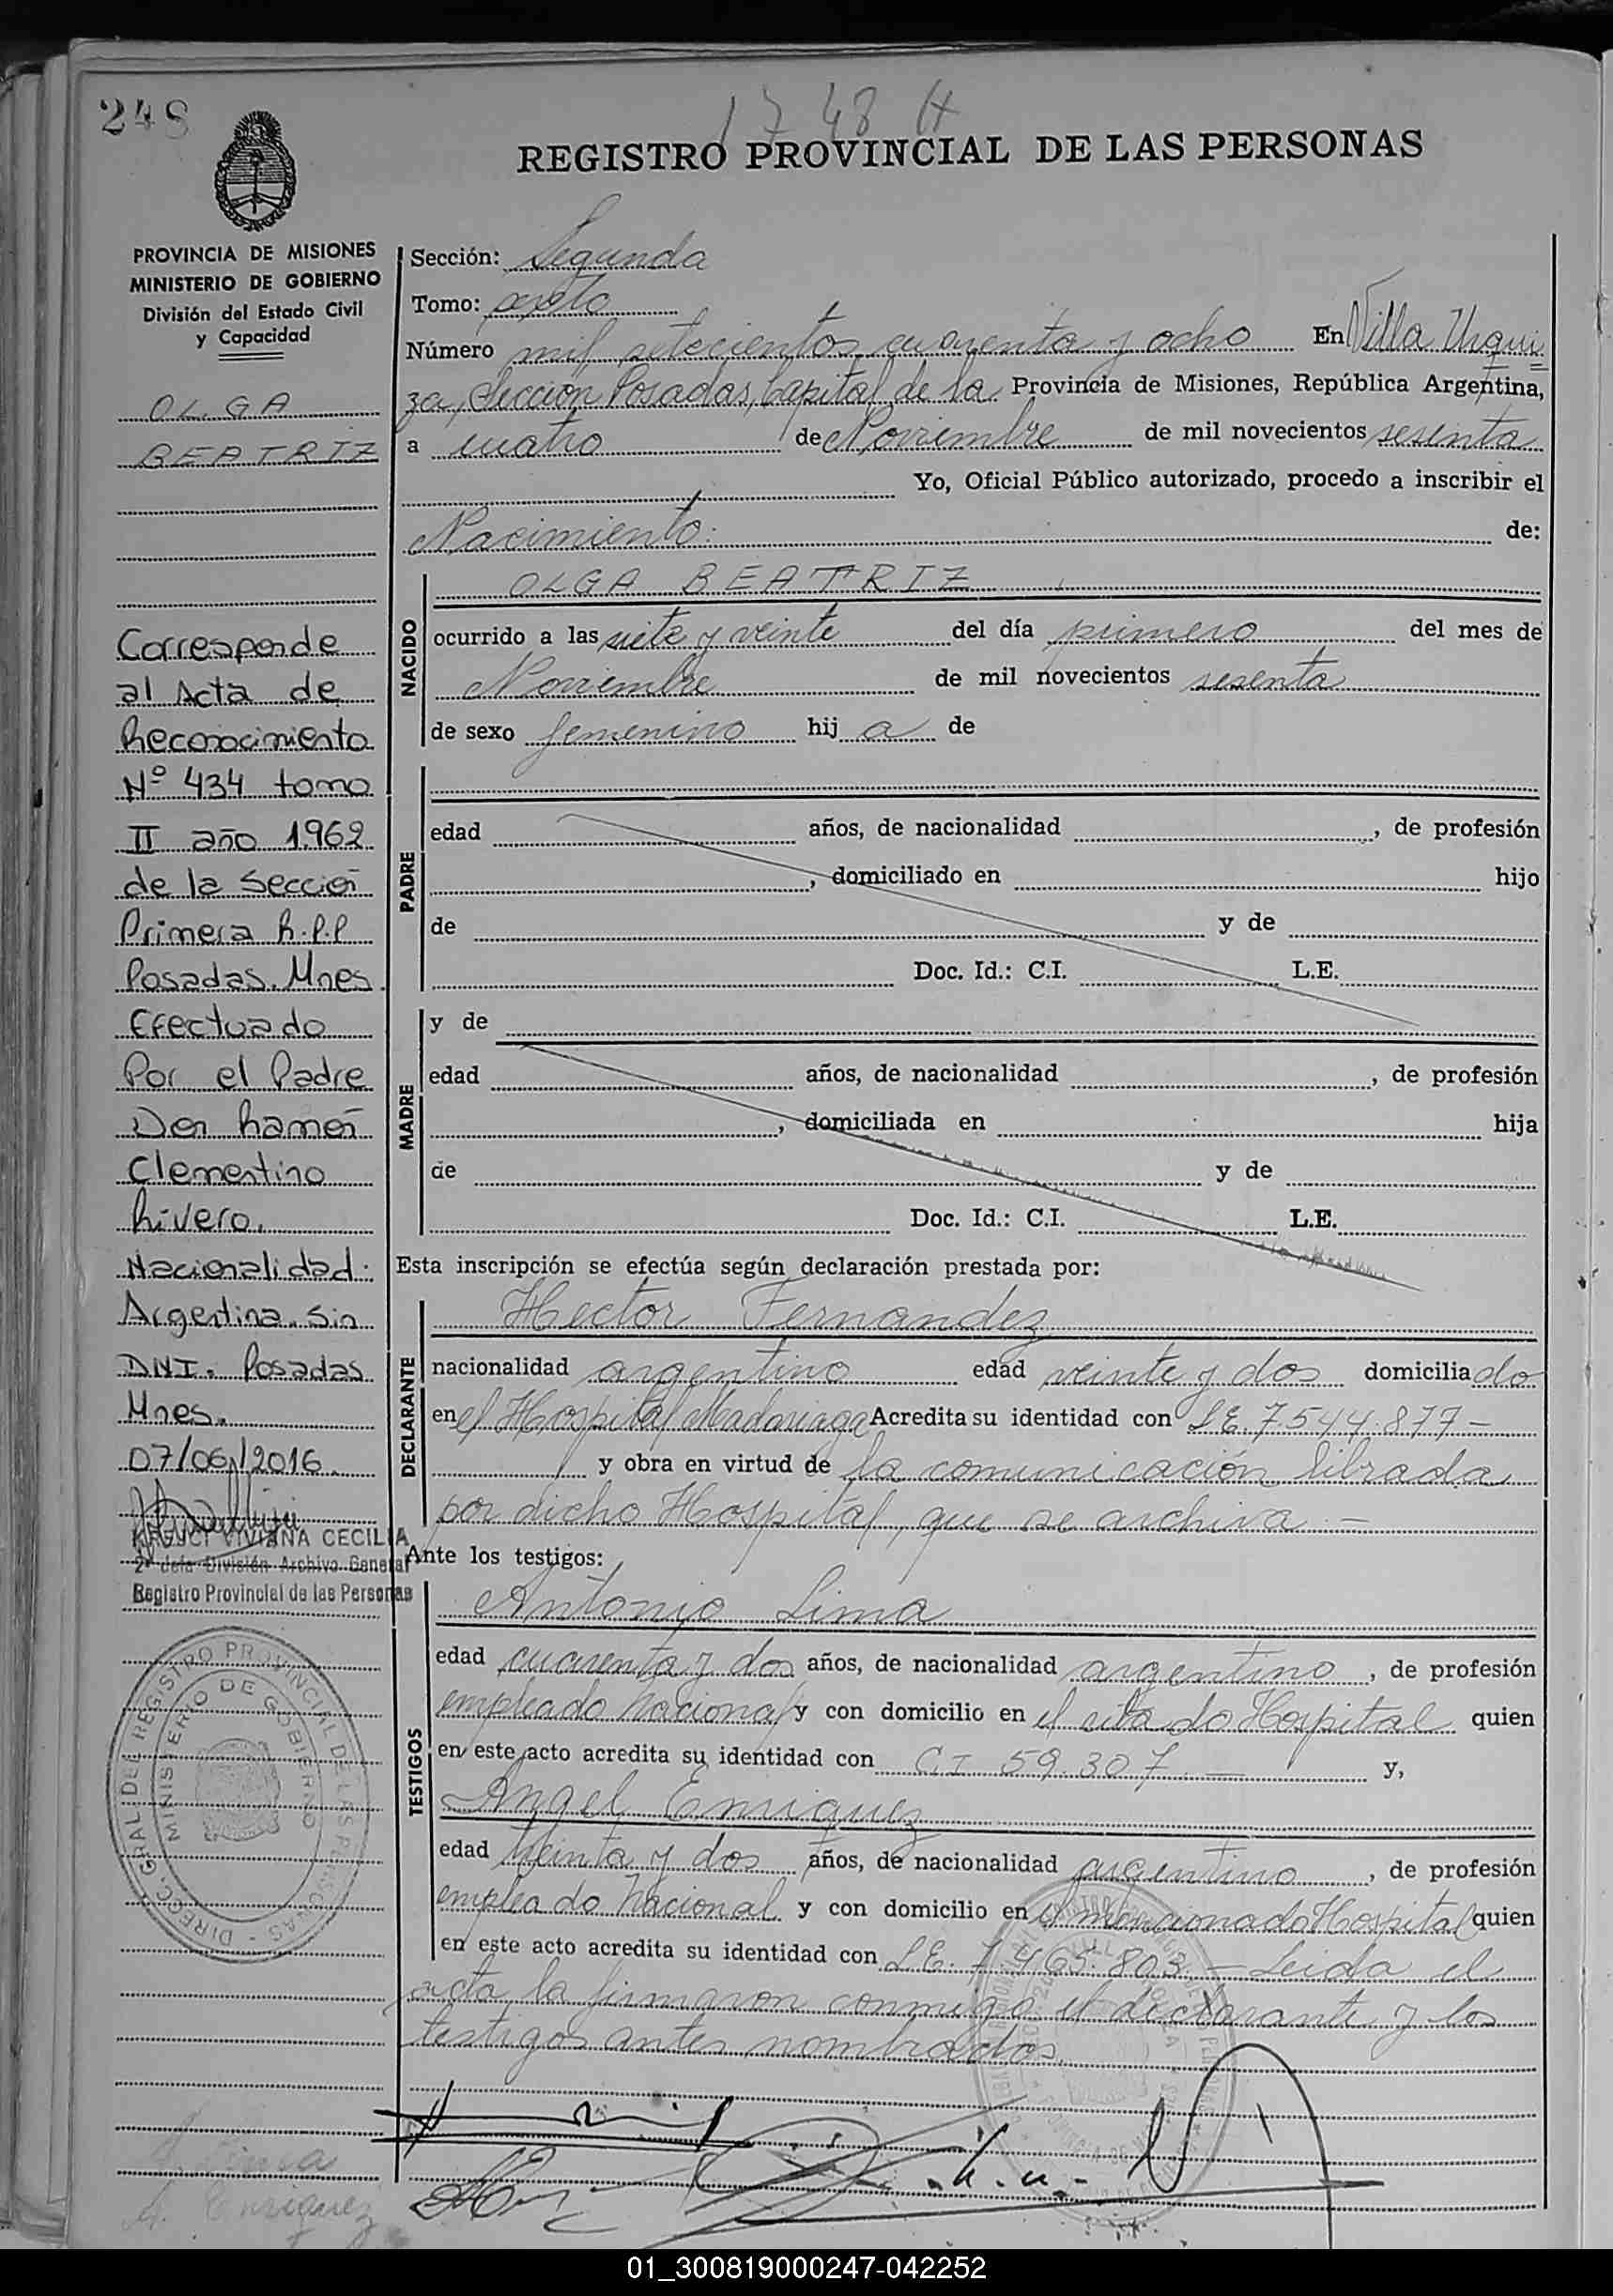 248
1748 H
REGISTRO PROVINCIAL DE LAS PERSONAS
PROVINCIA DE MISIONES
MINISTERIO DE GOBIERNO
División del Estado Civil
y Capacidad
OLGA
BEATRIZ
Corresponde
al Acta de
Reconocimiento
Nº 434 tomo
II año 1962
de la Sección
Primera R.P.P
Posadas. Mnes.
Efectuado
Por el Padre
Don Ramón
Clementino
Rivero.
Nacionalidad:
Argentina. Sin
DNI. Posadas
Mnes.
07/06/2016.
VIVIANA CECILIA
División Archivo General
Registro Provincial de las Personas
DIREC. GRAL DEL REGISTRO PROVINCIAL DE LAS PERSONAS
MINISTERIO DE GOBIERNO
Sección: Segunda
Tomo: sexto
Número mil setecientos cuarenta y ocho En Villa Urqui
za, Sección Posadas, Capital de la Provincia de Misiones, República Argentina,
a cuatro de Noviembre de mil novecientos sesenta
Yo, Oficial Público autorizado, procedo a inscribir el
Nacimiento: de:
NACIDO
OLGA BEATRIZ
ocurrido a las siete y veinte del día primero del mes de
Noviembre de mil novecientos sesenta
de sexo femenino hij a de
PADRE
edad años, de nacionalidad , de profesión
, domiciliado en hijo
de y de
Doc. Id.: C.I. L.E.
MADRE
y de
edad años, de nacionalidad , de profesión
, domiciliada en hija
de y de
Doc. Id.: C.I. L.E.
Esta inscripción se efectúa según declaración prestada por:
DECLARANTE
Hector Fernandez
nacionalidad argentino edad veinte y dos domicilia do
en el Hospital Madariaga Acredita su identidad con L E. 7.544.877 -
y obra en virtud de la comunicación librada
por dicho Hospital, que se archiva. -
Ante los testigos:
TESTIGOS
Antonio Lima
edad cuarenta y dos años, de nacionalidad argentino , de profesión
empleado Nacional y con domicilio en el citado Hospital quien
en este acto acredita su identidad con C I 59.307. - y,
Angel Enriquez
edad treinta y dos años, de nacionalidad argentino , de profesión
empleado Nacional y con domicilio en el mencionado Hospital quien
en este acto acredita su identidad con L E. 7.465.803. - Leida el
acta, la firmaron conmigo el declarante y los
testigos antes nombrados.
A. Lima
A. Enriquez
01_300819000247-042252